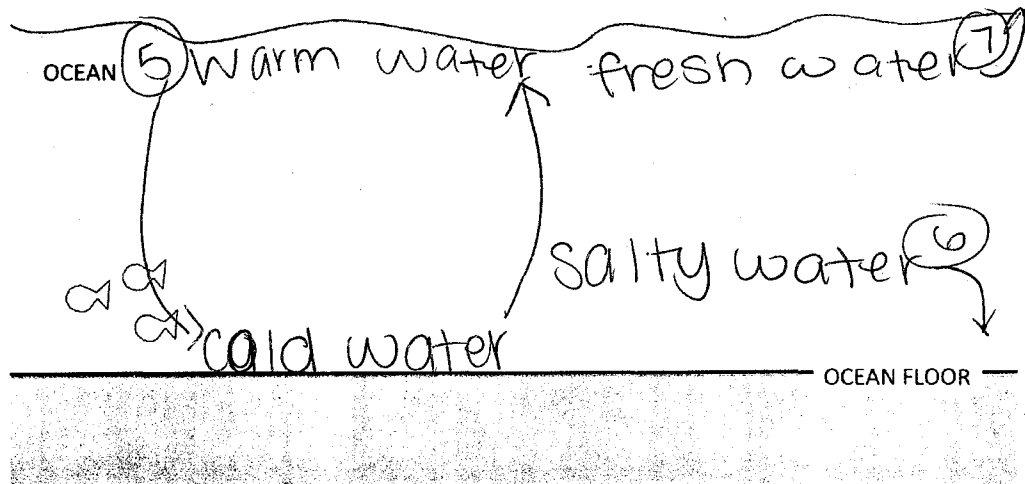 OCEAN 5 warm water fresh water 7
salty water 6
cold water
OCEAN FLOOR